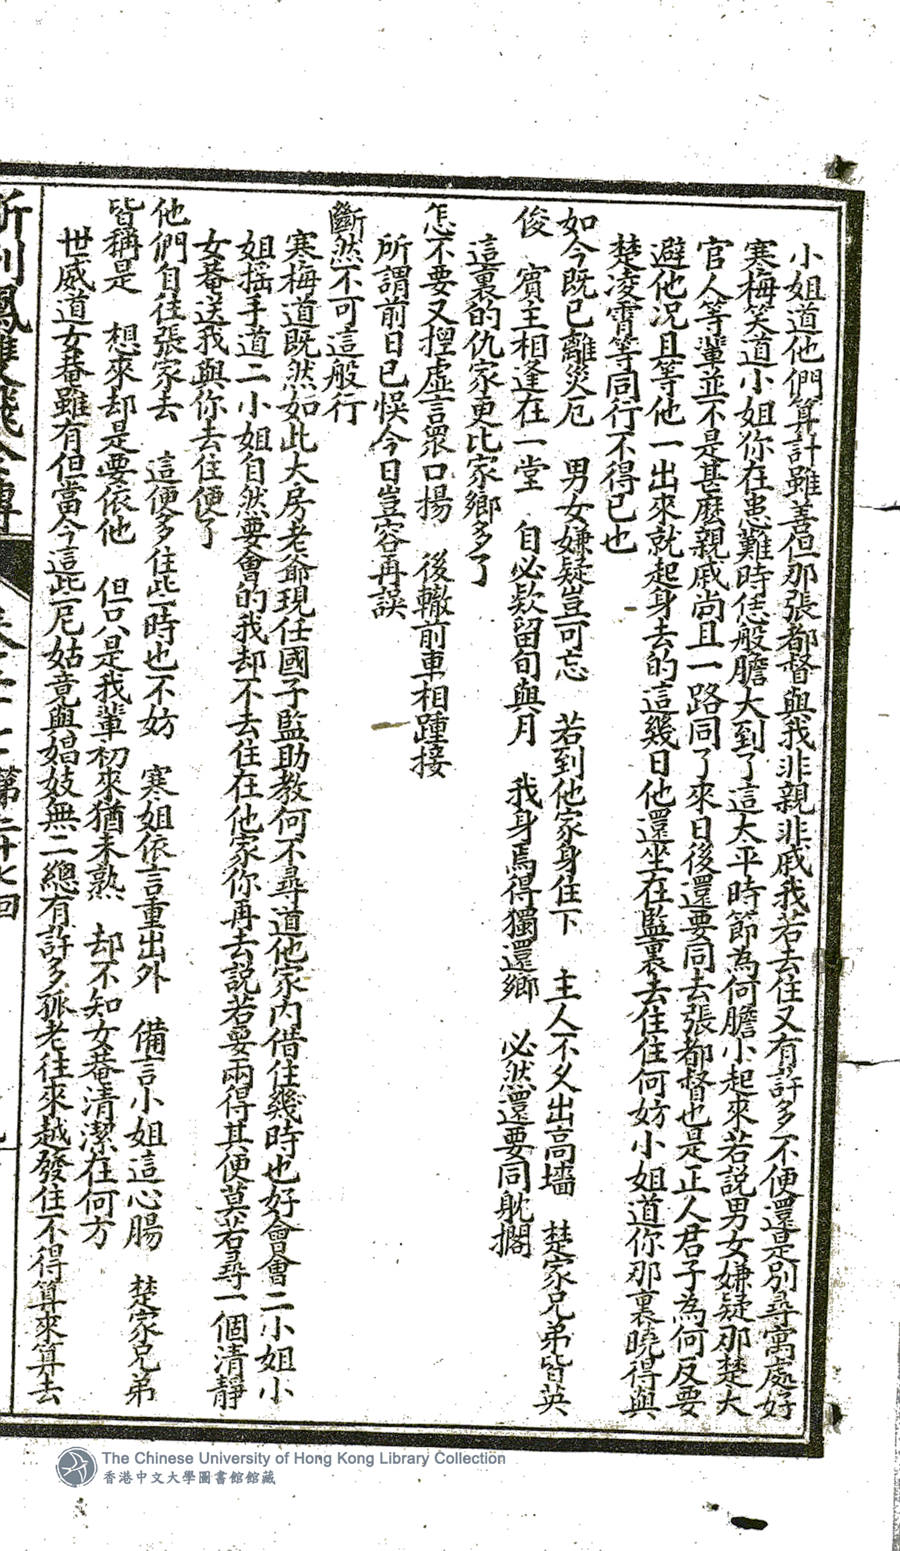 小姐道他們算計雖善但那張都督與我非親非戚我若去住又有許多不便還是別尋寓處好
寒梅笑道小姐你在患難時恁般膽大到了這太平時節為何膽小起來若説男女嫌疑那楚大
官人等輩並不是甚麼親戚尚且一路同了來日後還要同去張都督也是正人君子為何反要
避他况且等他一出來就起身去的這幾日他還坐在監裏去住住何妨小姐道你那裏曉得與
楚凌霄等同行不得已也
如今既已離災厄　男女嫌疑豈可忘　若到他家身住下　主人不久出高墻　楚家兄弟皆英
俊　賓主相逢在一堂　自必欵留旬與月　我身焉得獨還鄉　必然還要同躭擱
這裏的仇家更比家鄉多了
怎不要又揑虛言衆口揚　後轍前車相踵接
所謂前日已悞今日豈容再誤
斷然不可這般行
寒梅道既然如此大房老爺現任國子監助教何不尋道他家内借住幾時也好會會二小姐小
姐摇手道二小姐自然要會的我却不去住在他家你再去説若要兩得其便莫若尋一個清靜
女菴送我與你去住便了
他們自往張家去　這便多住些時也不妨　寒姐依言重出外　備言小姐這心腸　楚家兄弟
皆稱是　想來却是要依他　但只是我輩初來猶未熟　却不知女菴清潔在何方
世威道女菴雖有但當今這些尼姑竟與娼妓無二總有許多孤老往來越發住不得算來算去
鳳雙飛全傳　第二十七回
The Chinese University of Hong Kong Library Collection
香港中文大學圖書館館藏